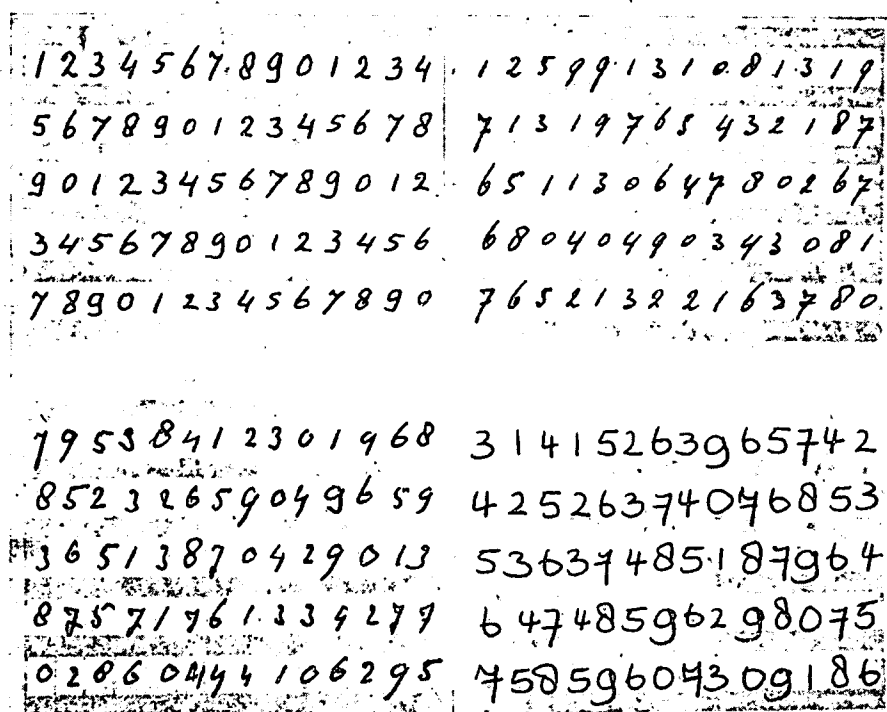 1 2 3 4 5 6 7 8 9 0 1 2 3 4
5 6 7 8 9 0 1 2 3 4 5 6 7 8
9 0 1 2 3 4 5 6 7 8 9 0 1 2
3 4 5 6 7 8 9 0 1 2 3 4 5 6
7 8 9 0 1 2 3 4 5 6 7 8 9 0
1 2 5 9 9 1 3 1 0 8 1 3 1 9
7 1 3 1 9 7 6 5 4 3 2 1 8 7
6 5 1 1 3 0 6 4 7 8 0 2 6 7
6 8 0 4 0 4 9 0 3 4 3 0 8 1
7 6 5 2 1 3 2 2 1 6 3 7 8 0
7 9 5 3 8 4 1 2 3 0 1 9 6 8
8 5 2 3 2 6 5 9 0 4 9 6 5 9
3 6 5 1 3 8 7 0 4 2 9 0 1 3
8 7 5 7 1 7 6 1 3 3 4 2 7 7
0 2 8 6 0 4 4 4 1 0 6 2 9 5
3 1 4 1 5 2 6 3 9 6 5 7 4 2
4 2 5 2 6 3 7 4 0 7 6 8 5 3
5 3 6 3 7 4 8 5 1 8 7 9 6 4
6 4 7 4 8 5 9 6 2 9 8 0 7 5
7 5 8 5 9 6 0 7 3 0 9 1 8 6